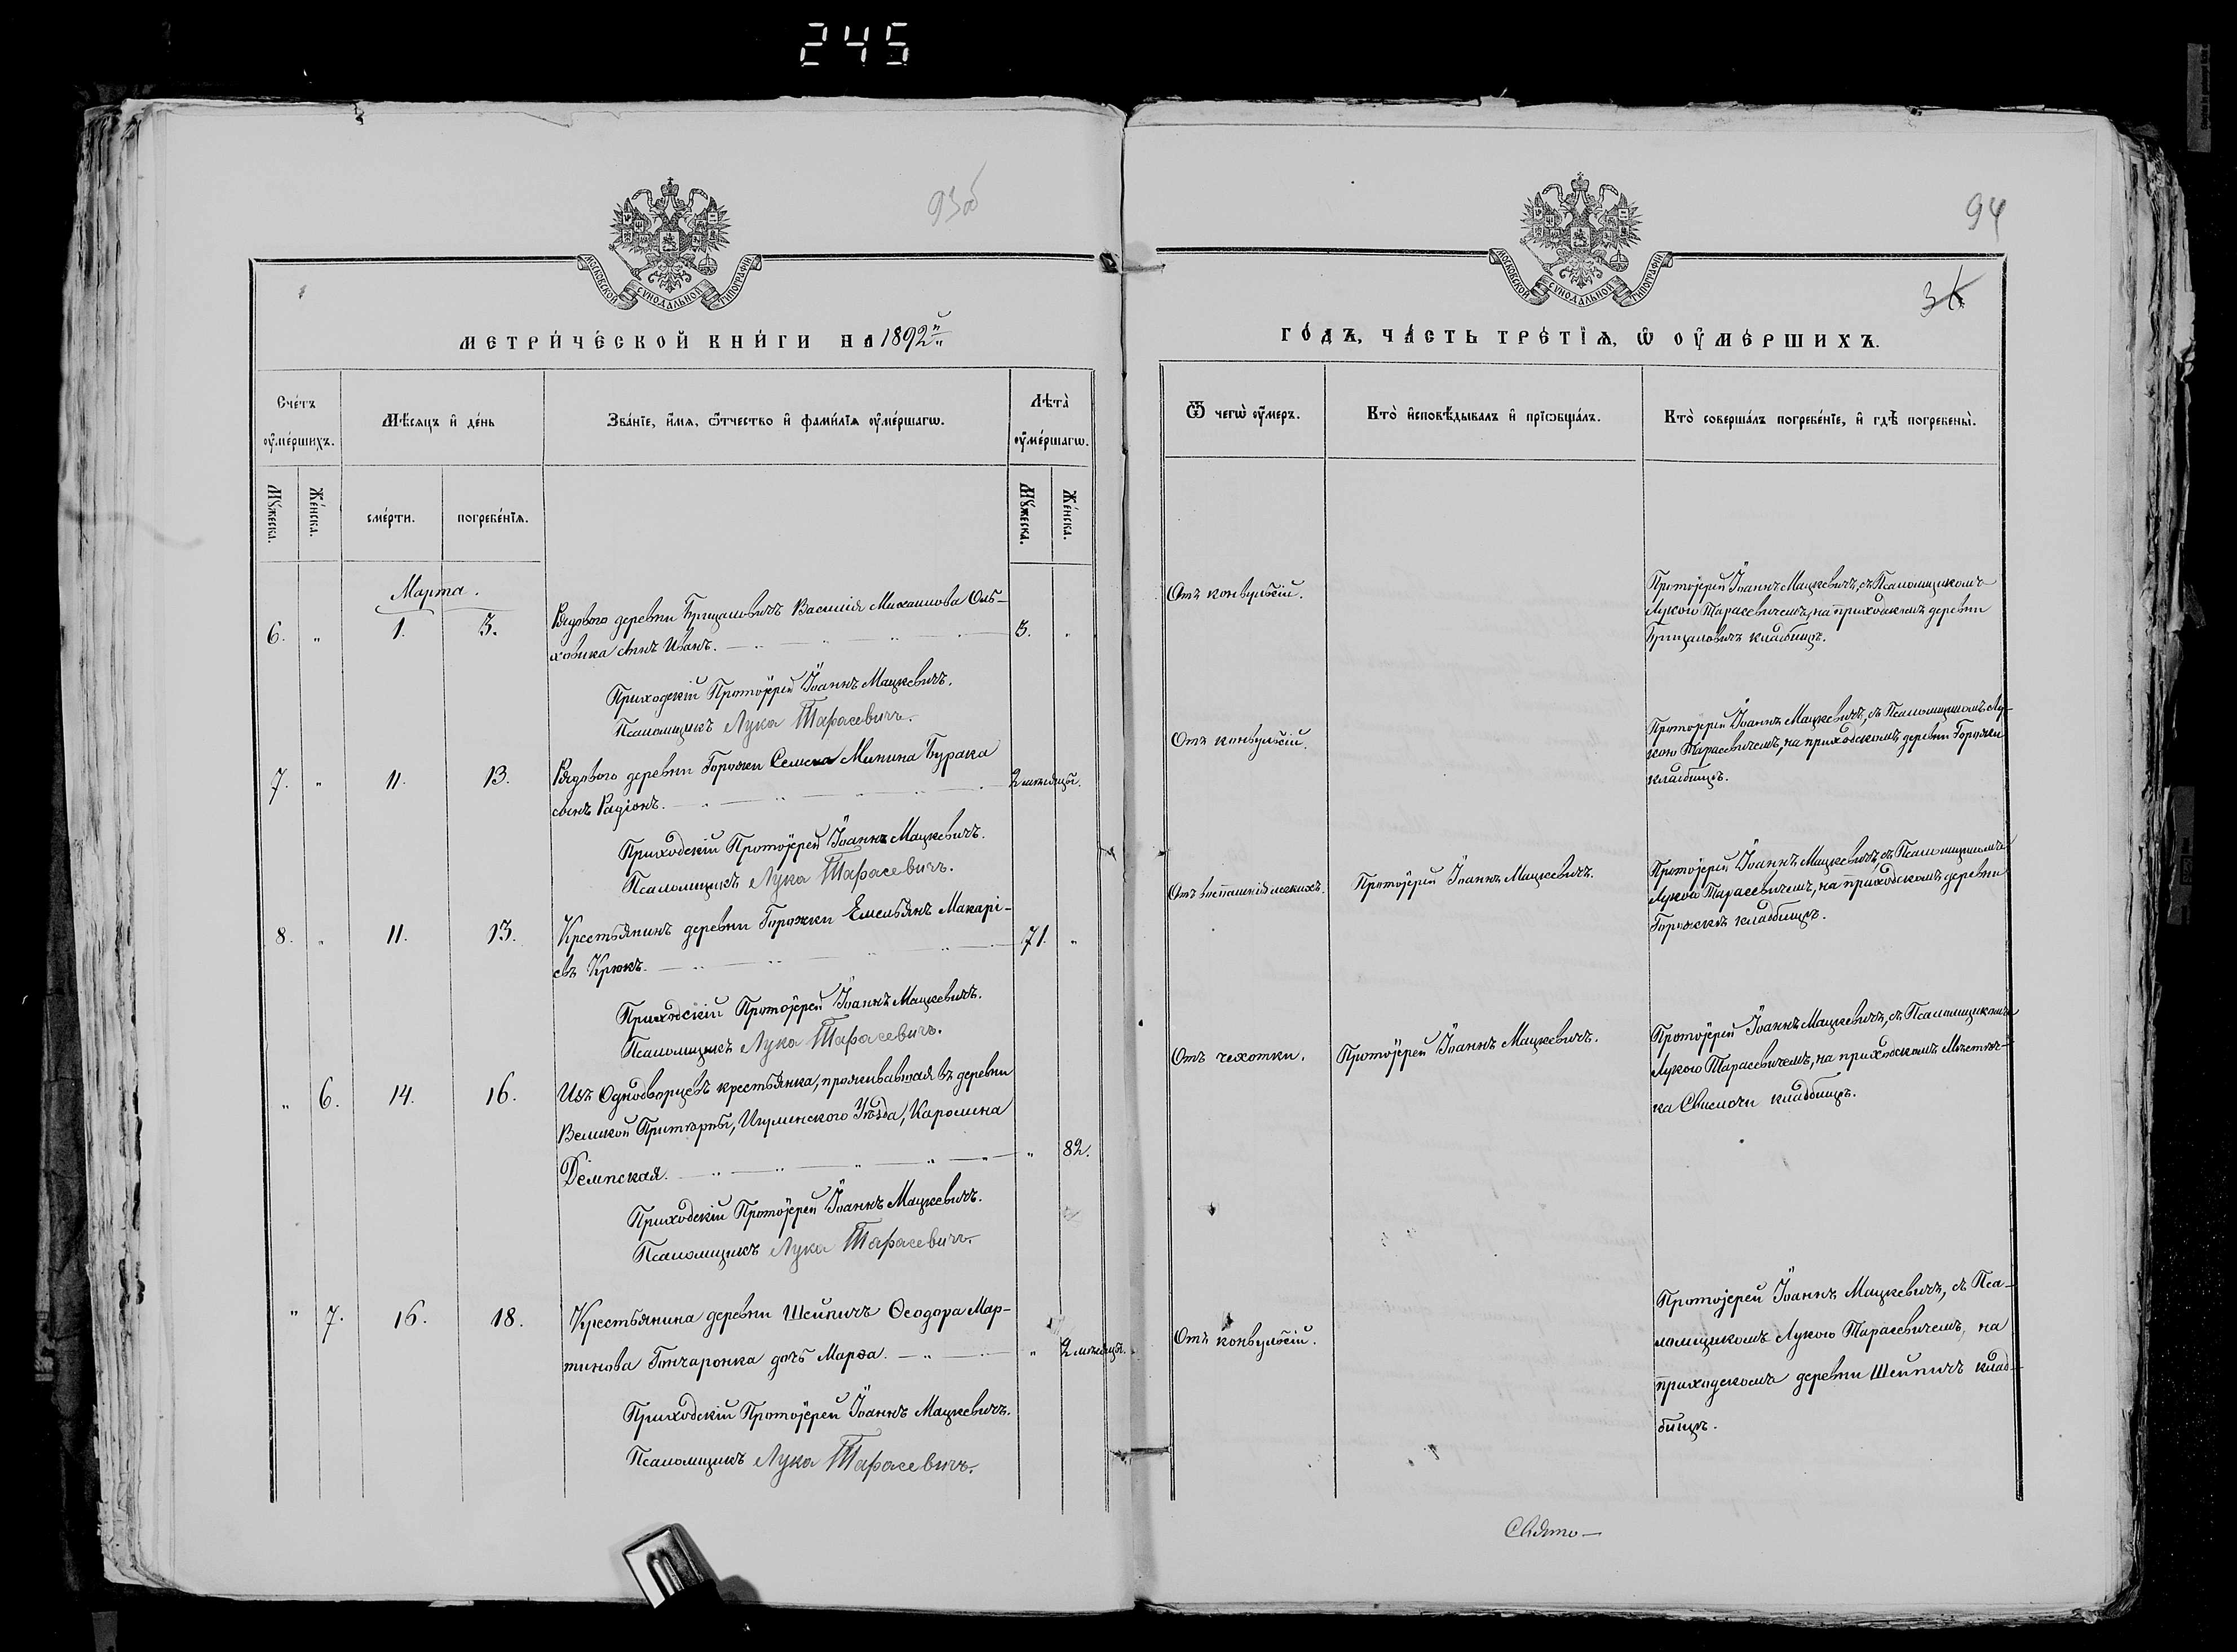 245
93об
МОСКОВСКОЙ СУНОДАЛЬНОЙ ТИПОГРАФІИ
МЕТРИ́ЧЕСКОЙ КНИ́ГИ НА 1892й
Сче́тъ ᲂу҆ме́ршихъ.
Мѣ́сяцъ и҆ де́нь
Зва́нїе, и҆́мѧ, ѻ҆́тчество и҆ фами́лїѧ ᲂу҆ме́ршагѡ.
Лѣта̀ ᲂу҆ме́ршагѡ.
Мꙋ́жеска.
Же́нска.
сме́рти.
погребе́нїѧ.
Мꙋ́жеска.
Же́нска.
Марта.
6. " 1. 3. Рядового деревни Брицаловичъ Василія Михаилова Оль-
ховика сынъ Иванъ. 3. "
Приходскій Протоіерей Іоаннъ Мацкевичъ.
Псаломщикъ Лука Тарасевичъ.
7. " 11. 13. Рядового деревни Горожки Семена Минина Бурака
сынъ Радіонъ. 2 мѣсяцы.
Приходскій Протоіерей Іоаннъ Мацкевичъ.
Псаломщикъ Лука Тарасевичъ.
8. " 11. 13. Крестьянинъ деревни Горожки Емельянъ Макарі-
евъ Крюкъ. 71. "
Приходскій Протоіерей Іоаннъ Мацкевичъ.
Псаломщикъ Лука Тарасевичъ.
" 6. 14. 16. Изъ Однодворцевъ крестьянка, проживавшая въ деревни
Великой Притерпы, Игуменского Уѣзда, Каролина
Демпская. " 82.
Приходскій Протоіерей Іоаннъ Мацкевичъ.
Псаломщикъ Лука Тарасевичъ.
" 7. 16. 18. Крестьянина деревни Шейпичъ Ѳеодора Мар-
тинова Гончаронка дочь Марѳа. " 2 мѣсяцы.
Приходскій Протоіерей Іоаннъ Мацкевичъ.
Псаломщикъ Лука Тарасевичъ.
94
МОСКОВСКОЙ СУНОДАЛЬНОЙ ТИПОГРАФІИ
ГО́ДЪ, ЧА́СТЬ ТРЕ́ТЇѦ, Ѡ҆ ОУ҆МЕ́РШИХЪ.
Ѿ чегѡ̀ ᲂу҆́меръ.
Кто̀ и҆сповѣ́дывалъ и҆ прїѡбща́лъ.
Кто̀ соверша́лъ погребе́нїе, и҆ гдѣ̀ погребены̀.
Отъ конвульсій.
Протоіерей Іоаннъ Мацкевичъ, съ Псаломщикомъ
Лукою Тарасевичемъ, на приходскомъ деревни
Брицаловичъ кладбищѣ.
Отъ конвульсій.
Протоіерей Іоаннъ Мацкевичъ, съ Псаломщикомъ Лу-
кою Тарасевичемъ, на приходскомъ деревни Горожки
кладбищѣ.
Отъ воспаленія легкихъ. Протоіерей Іоаннъ Мацкевичъ.
Протоіерей Іоаннъ Мацкевичъ, съ Псаломщикомъ
Лукою Тарасевичемъ, на приходскомъ деревни
Горожекъ кладбищѣ.
Отъ чехотки. Протоіерей Іоаннъ Мацкевичъ.
Протоіерей Іоаннъ Мацкевичъ, съ Псаломщикомъ
Лукою Тарасевичемъ, на приходскомъ Мѣстеч-
ка Свислочи кладбищѣ.
Отъ конвульсій.
Протоіерей Іоаннъ Мацкевичъ, съ Пса-
ломщикомъ Лукою Тарасевичемъ, на
приходскомъ деревни Шейпичъ клад-
бищѣ.
Свято—